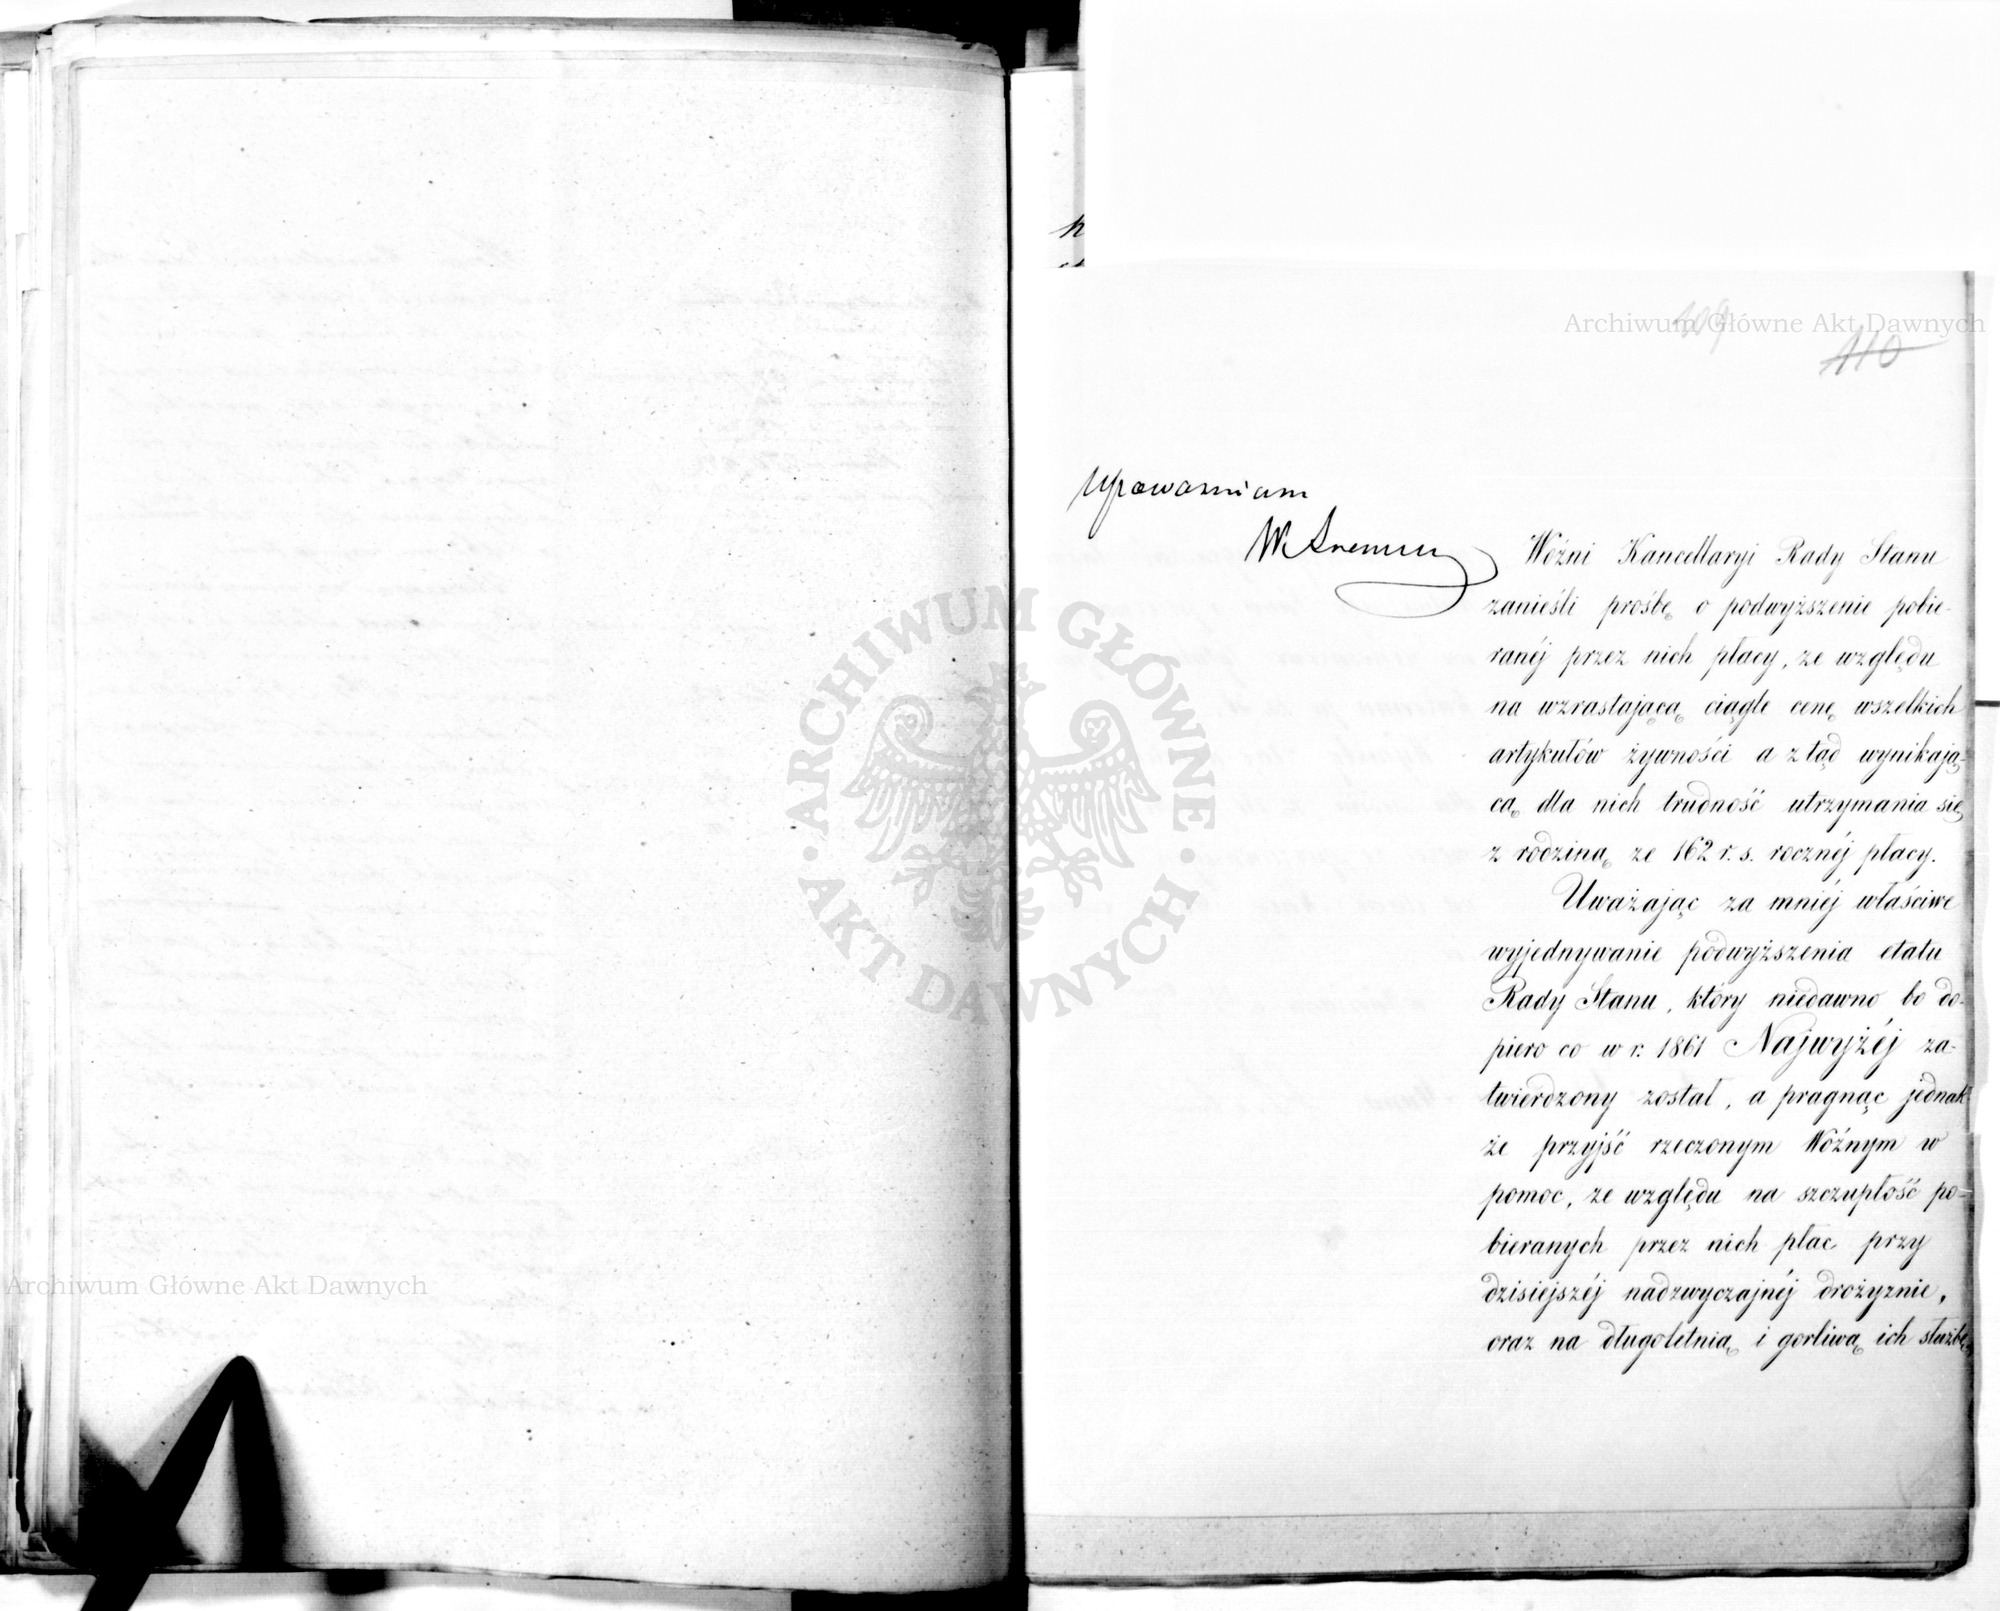 109
110
Upoważniam
Woźni Kancellaryi Rady Stanu
zanieśli prośbę o podwyższenie pobie-
ranéj przez nich płacy, ze względu
na wzrastającą ciągle cenę wszelkich
artykułów żywności a ztąd wynikają-
cą dla nich trudność utrzymania się
z rodziną ze 162 r. s. rocznéj płacy.
Uważając za mniéj właściwe
wyjednywanie podwyższenia etatu
Rady Stanu, który niedawno bo do-
piero co w r. 1861 Najwyżéj za-
twierdzony został, a pragnąc jednak
że przyjść rzeczonym Woźnym w
pomoc, ze względu na szczupłość po-
bieranych przez nich płac przy
dzisiejszéj nadzwyczajnéj drożyznie,
oraz na długoletnią i gorliwą ich służbę,
Archiwum Główne Akt Dawnych
Archiwum Główne Akt Dawnych
ARCHIWUM GŁÓWNE
AKT DAWNYCH